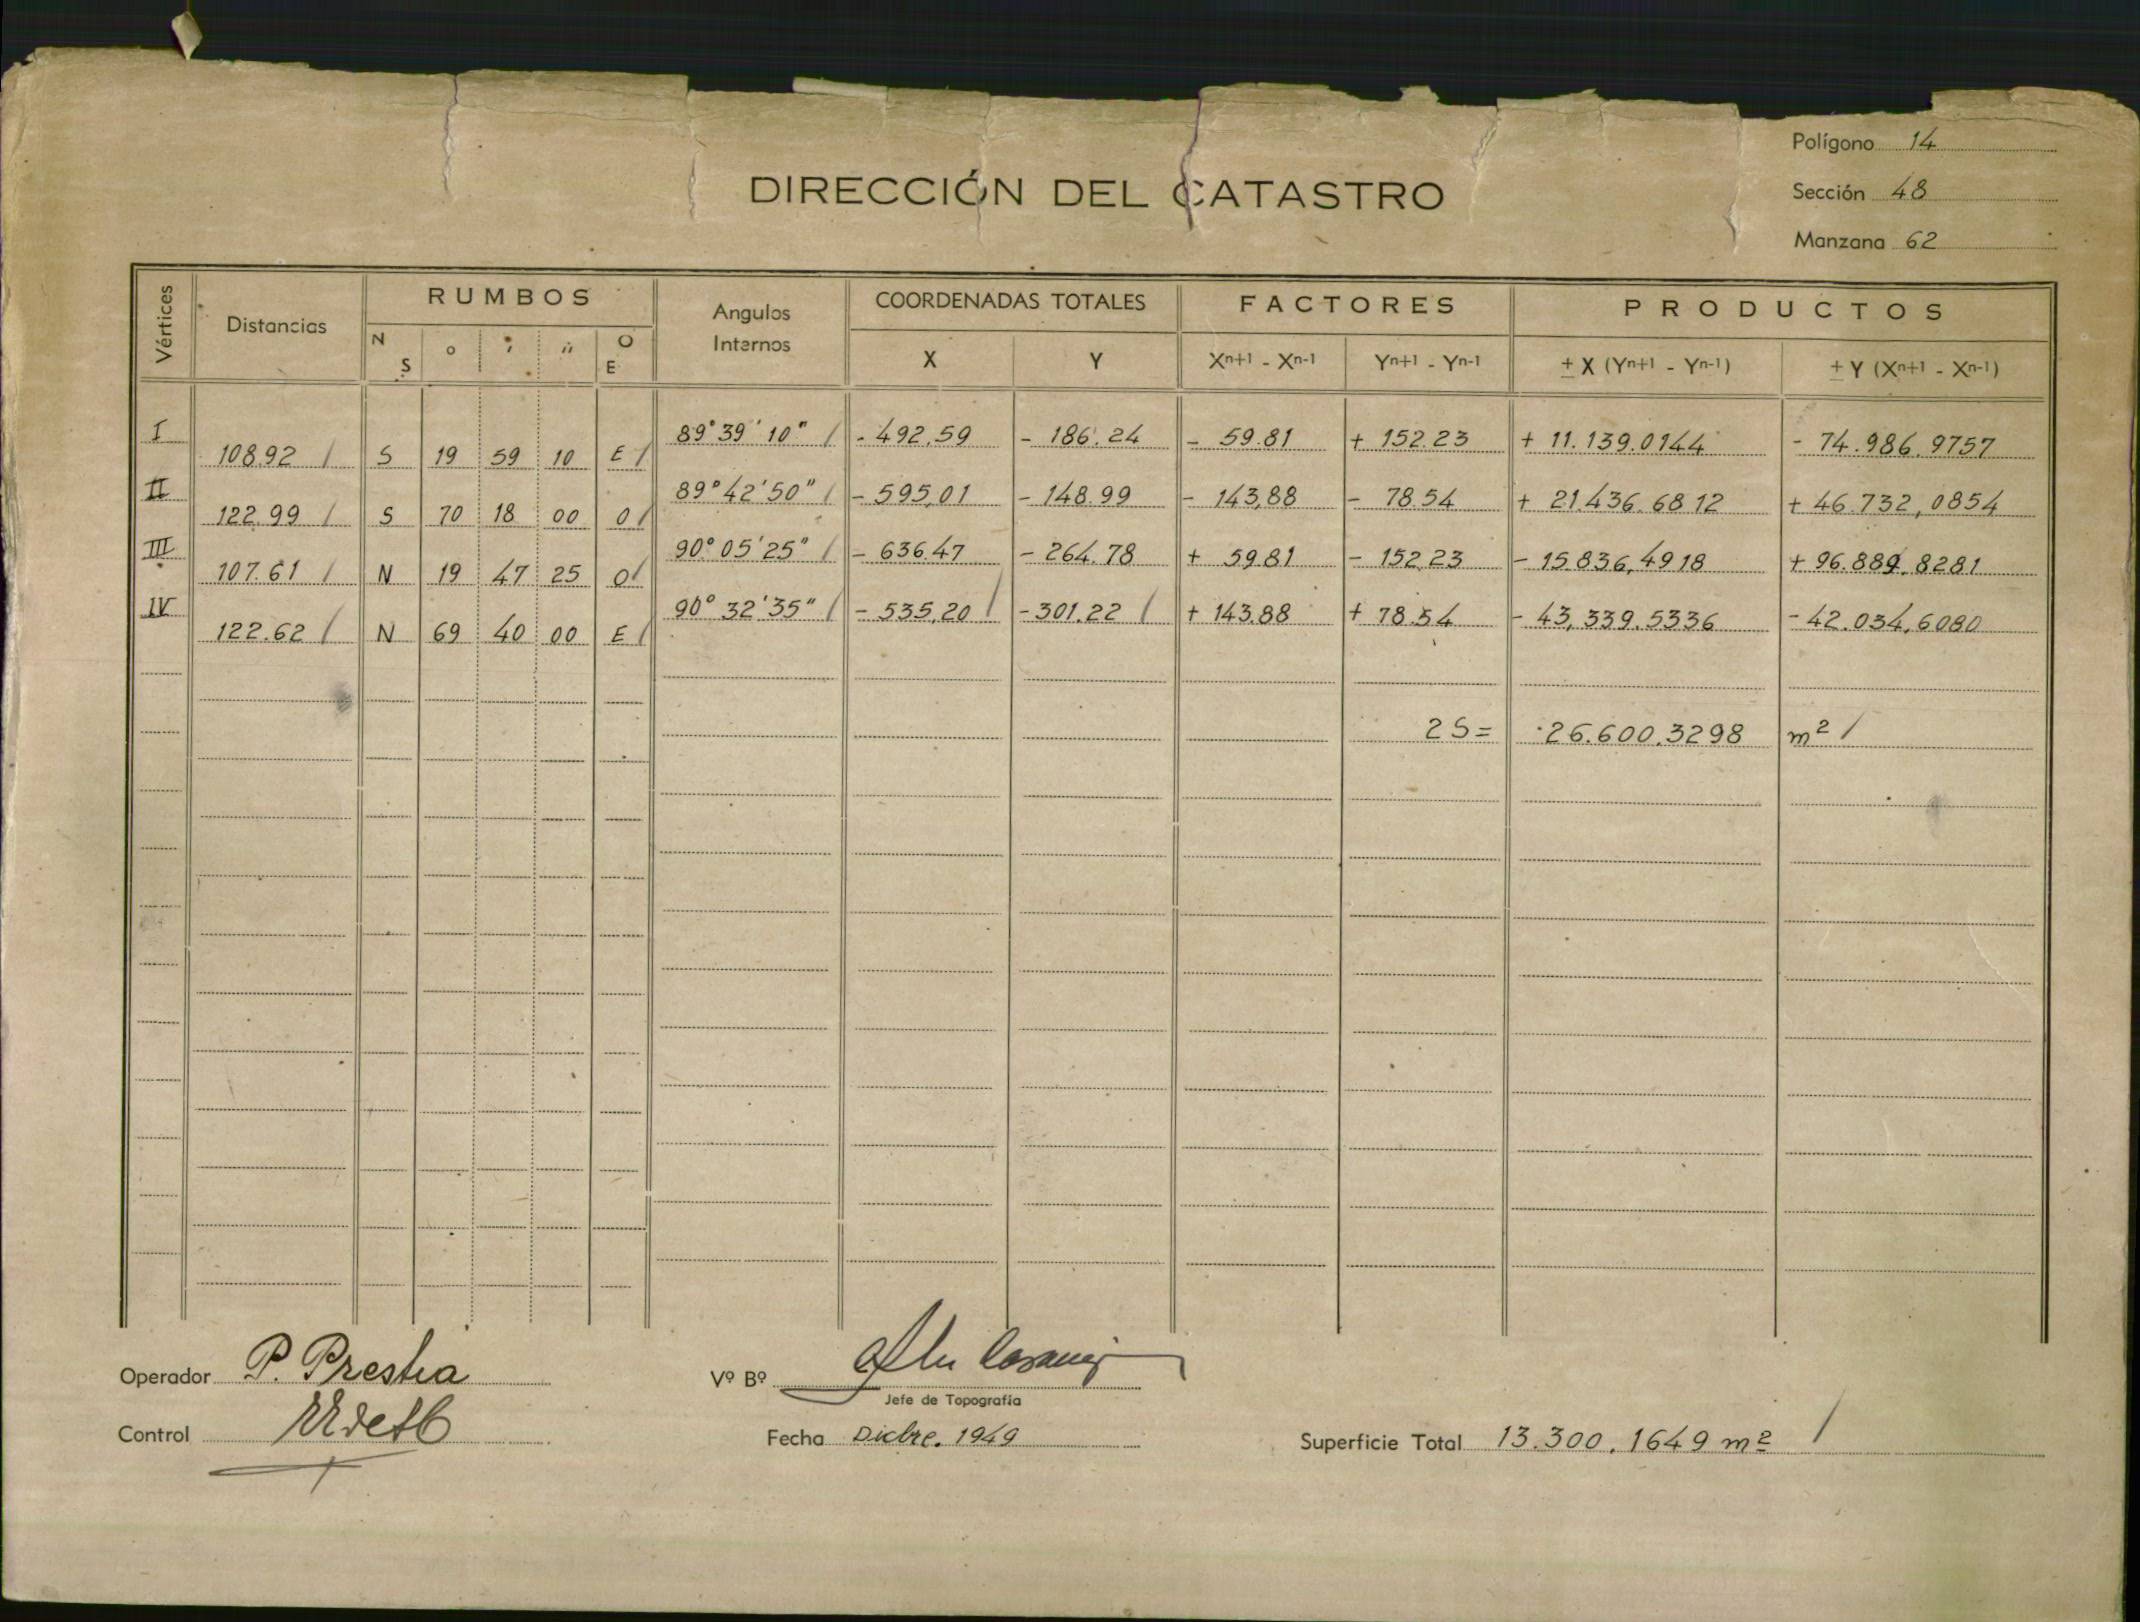 Polígono 14
DIRECCIÓN DEL CATASTRO
Sección 48
Manzana 62
Vértices Distancias RUMBOS Angulos Internos COORDENADAS TOTALES FACTORES PRODUCTOS
N S ° ' " O E X Y Xn+1 - Xn-1 Yn+1 - Yn-1 ± X (Yn+1 - Yn-1) ± Y (Xn+1 - Xn-1)
I 89°39'10" / - 492,59 - 186.24 - 59.81 + 152.23 + 11.139.0144 - 74.986.9757
108.92 / S 19 59 10 E /
II 89°42'50" / - 595,01 - 148.99 - 143,88 - 78.54 + 21.436.6812 + 46.732,0854
122.99 / S 70 18 00 O /
III 90°05'25" / - 636.47 - 264.78 + 59.81 - 152.23 - 15.836,4918 + 96.889.8281
107.61 / N 19 47 25 O /
IV 90°32'35" / - 535,20 / - 301.22 / + 143.88 + 78.54 - 43,339.5336 - 42.034,6080
122.62 / N 69 40 00 E /
2S = 26.600.3298 m² /
Operador P. Prestia
Vº Bº
Jefe de Topografía
Control
Fecha Dicbre. 1949
Superficie Total 13.300.1649 m² /